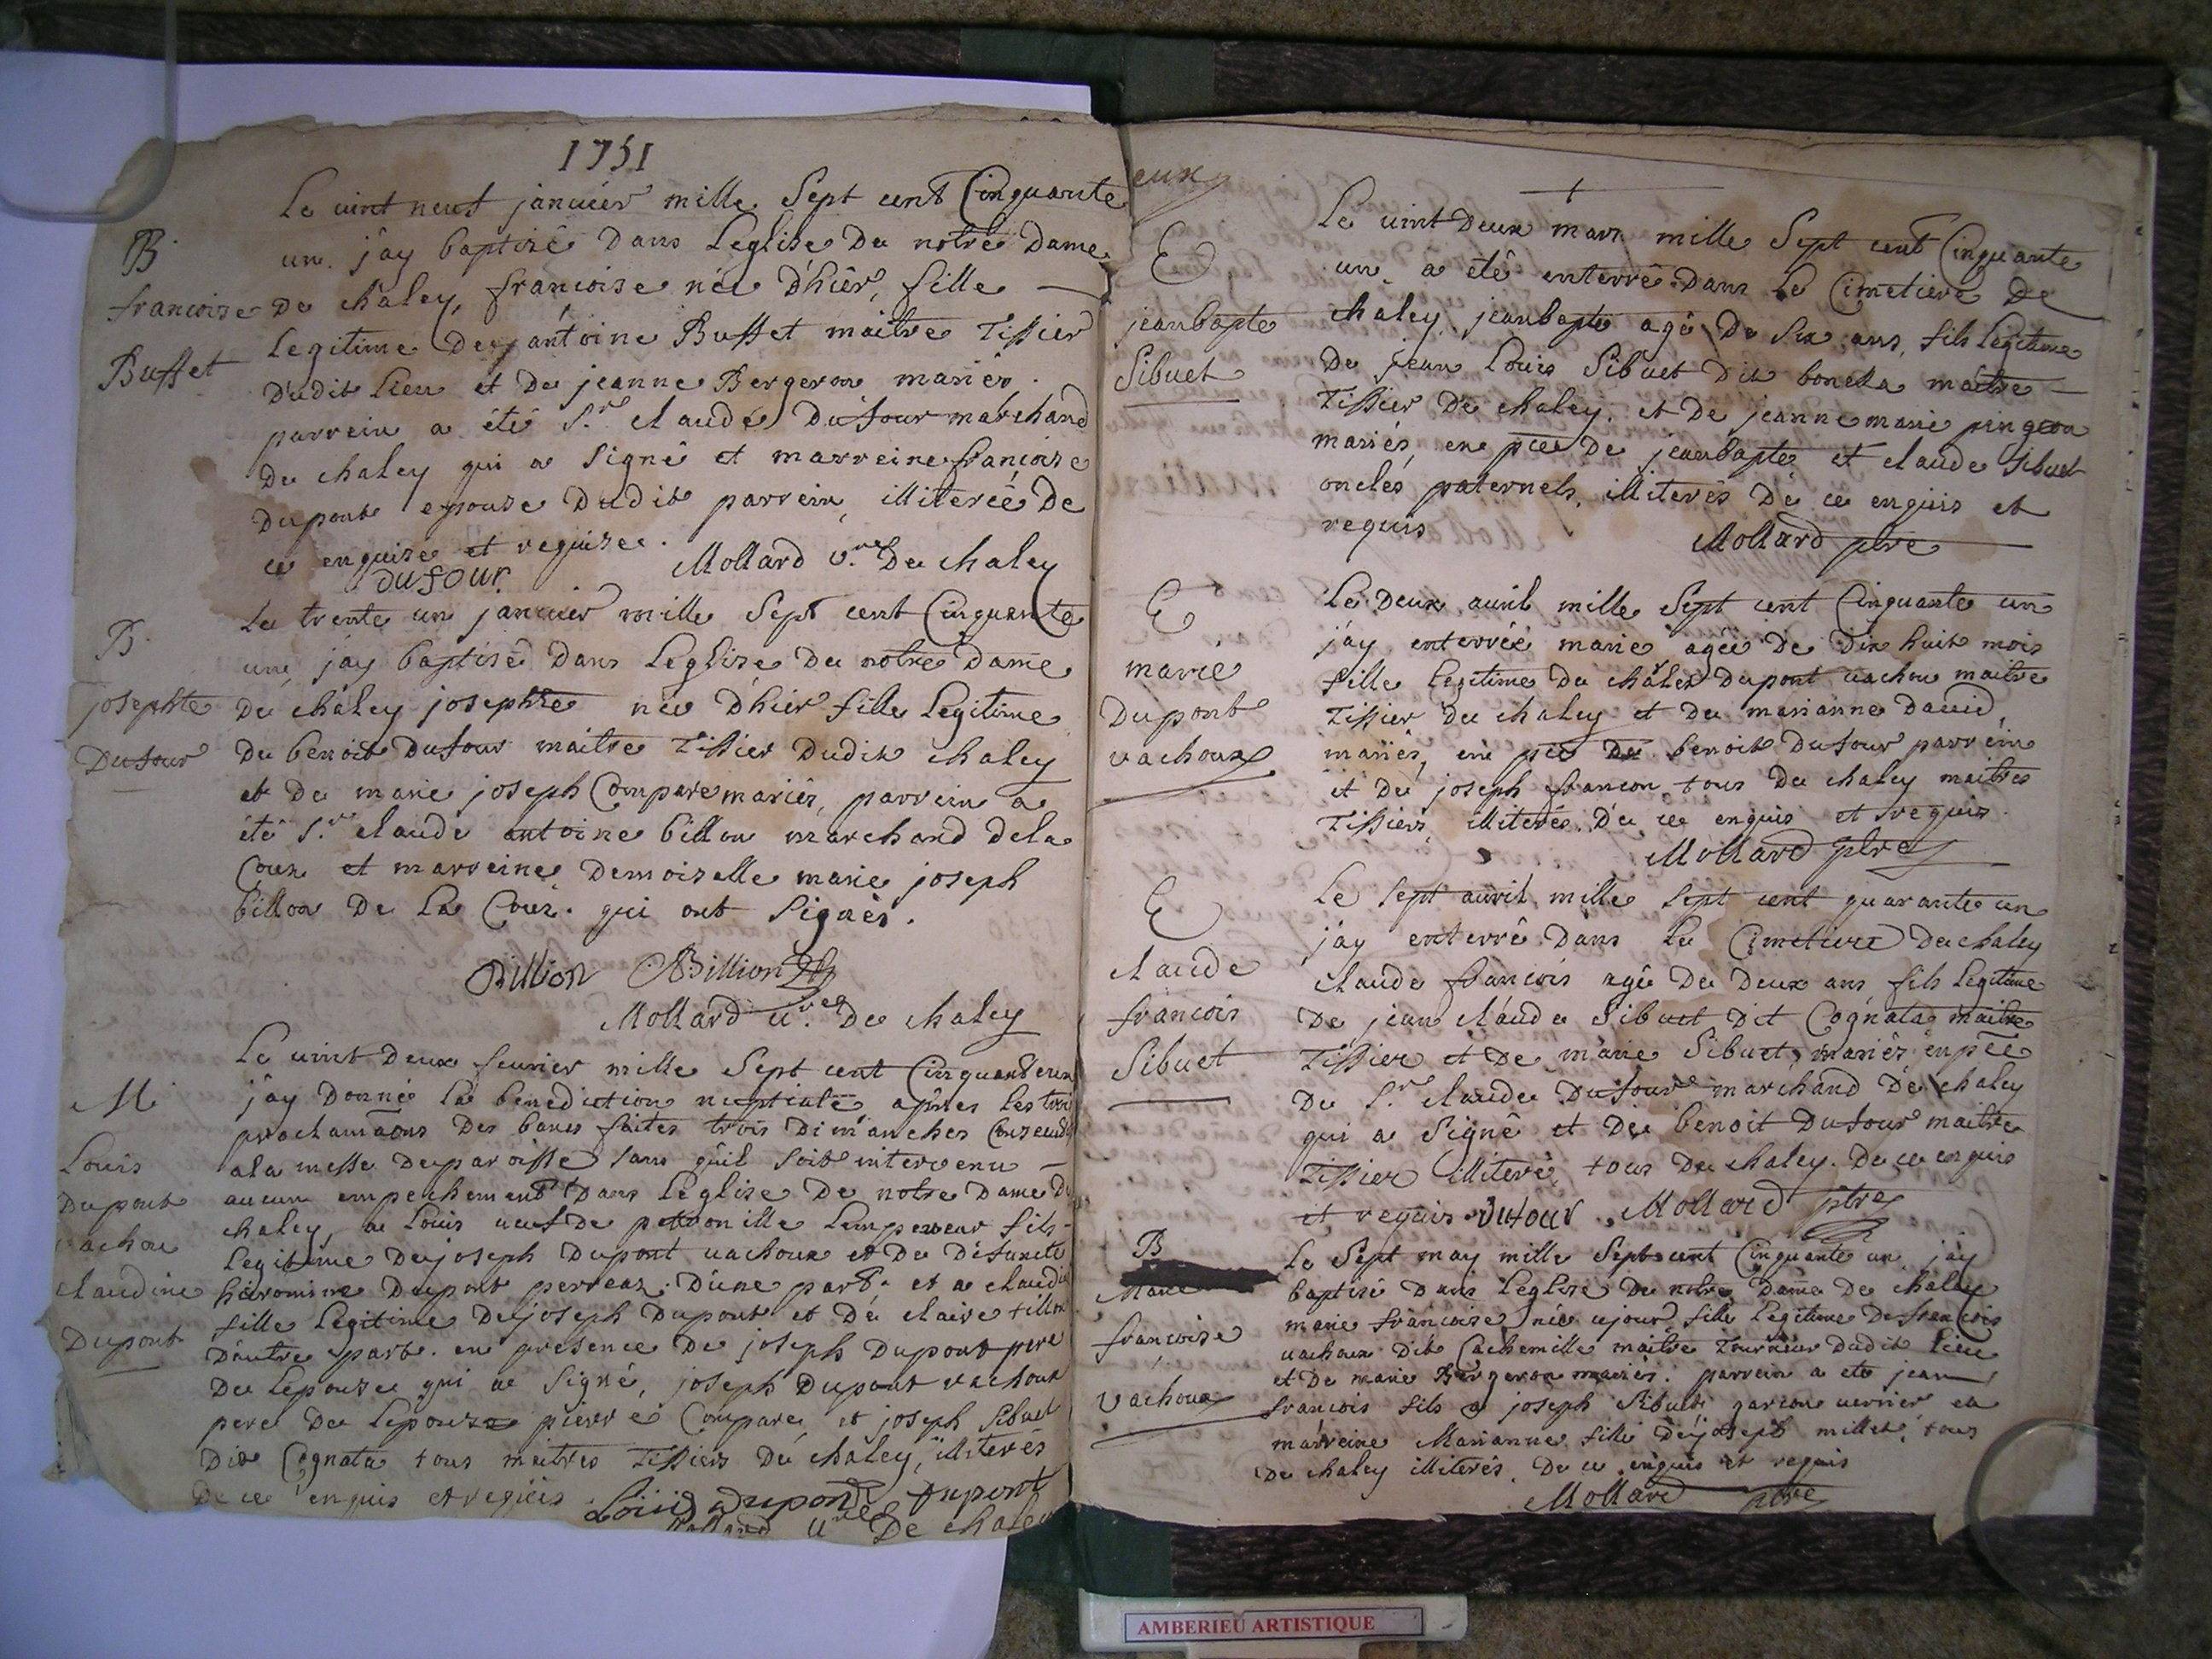 1751
Le vint neuf janvier mille Sept cent Cinquante
B
un. j'ay baptisé Dans Leglise De notre Dame
francoise
De chaley, francoise née D'hier, fille
Buffet
Legitime De antoine Buffet maitre Tissier
Dudit Lieu et De jeanne Bergeron mariés.
parrein a été S.r claude Dufour marchand
De chaley qui a Signé et marreine francoise
Dupont epouse Dudit parrein, illiterée De
ce enquise et requise.
dufour
Mollard v.re De chaley
Le trente un janvier mille Sept cent Cinquante
B.
un jay baptisé Dans Leglise De notre Dame
josephte
De chaley josephte née D'hier fille Legitime
Dufour
De benoit Dufour maitre Tissier Dudit chaley
et De marie joseph Compare mariés, parrein a
été S.r claude antoine billon marchand dela
Couz et marreine Demoiselle marie joseph
billon De La Couz. qui ont Signés.
Billion Billion
Mollard v.re De chaley
Le vint Deux fevrier mille Sept cent Cinquante un
M
j'ay Donné La benediction nuptiale apres Les trois
proclamaõns Des bans faites trois Dimanches
Louis
ala messe Deparoisse sans quil Soit intervenu
Dupont
aucun empechement Dans Leglise De notre Dame De
vachou
chaley, a Louis veuf De petronille Lempereur fils
Legitime De joseph Dupont vachoux et De Defuncte
claudine
hieromine Dupont perreaz. D'une part. et a claudine
Dupont
fille Legitime De joseph Dupont et De claire tillon
D'autre part. en presence De joseph Dupont pere
De Lepouse qui a Signé, joseph Dupont vachoux
pere De Lepoux pierre Compare, et joseph Sibuet
Dit Cognata tous maitres Tissiers De chaley, illiterés
De ce enquis et requis.
Loüis dupont dupont
Mollard v.re De chaley
eux
Le vint Deux mars mille Sept cent Cinquante
E
un a été enterré Dans Le Cimetiere De
jeanbapte
chaley jeanbapte agé De Six ans, fils Legitime
Sibuet
De jean Louis Sibuet Dit maitre
Tissier De chaley. et De jeanne marie pingeon
mariés, en pñce De jeanbapte et claude Sibuet
oncles paternels, illiterés De ce enquis et
requis
Mollard ptre
E
Le Deux avril mille Sept cent Cinquante un
j'ay enterrée marie agée De Dix huit mois
marie
fille Legitime De charles Dupont vachou maitre
Dupont
Tissier De chaley et De marianne David,
vachoux
mariés, en pñce De benoit Dufour parrein
et De joseph francon tous De chaley maitres
Tissiers, illiterés. De ce enquis et requis.
Mollard ptre
E
Le Sept avril mille Sept cent quarante un
j'ay enterré Dans Le Cimetiere De chaley
claude
claude francois agé De Deux ans fils Legitime
francois
De jean claude Sibuet Dit Cognata maitre
Sibuet
Tissier et De marie Sibuet mariés en pñce
De S.r claude Dufour marchand De chaley
qui a Signé et De benoit Dufour maitre
Tissier illiteré, tous De chaley. De ce enquis
et requis. Dufour Mollard ptre
B
Le Sept may mille Sept cent Cinquante un j'ay
Marie
baptisé Dans Leglise De notre Dame De chaley
francoise
marie francoise née cejour, fille Legitime De francois
vachoux Dit Cachemille maitre Dudit Lieu
vachoux
et De marie Bergeron mariés. parrein a eté jean
francois fils a joseph Sibuet garcon et
marreine Marianne fille De joseph millet, tous
De chaley illiterés. De ce enquis et requis
Mollard ptre
AMBERIEU ARTISTIQUE